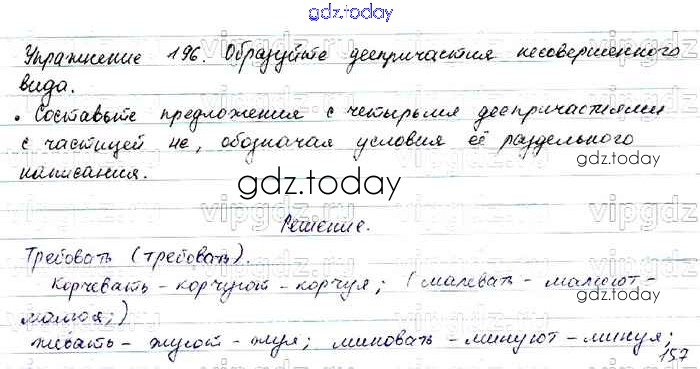 gdz.today
Упражнение 196. Образуйте деепричастия несовершенного
вида.
• Составьте предложения с четырьмя деепричастиями
с частицей не, обозначая условия её раздельного
написания.
gdz.today
gdz.today
Решение.
Требовать (требовать).
Корчевать - корчуют - корчуя; (малевать - малюют -
малюя;)
жевать - жуют - жуя; миновать - минуют - минуя;
157